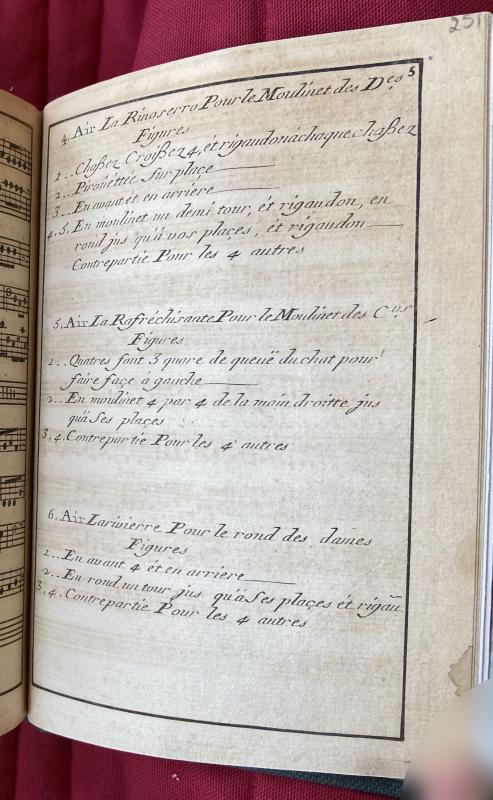 251
5
4. Air La Rinaserro Pour le Moulinet des D.es
Figures
1.. Chaßez Croißez 4, ét rigaudon á chaque chaßez
2.. Pirouéttée Sur plaçe
3.. En avant ét en arriere
4, 5. En moulinet un demi tour, ét rigaudon, en
rond jus qu'á vos plaçes, ét rigaudon
Contrepartie Pour les 4 autres
5. Air La Rafréchisante Pour le Moulinet des C.ers
Figures
1.. Quatres font 3 quare de queuë du chat pour
faire façe a gauche
2.. En moulinet 4 par 4 de la main droitte jus
qu'á Ses plaçes
3, 4. Contrepartie Pour les 4 autres
6. Air Larivierre Pour le rond des dames
Figures
1.. En avant 4 ét en arriere
2.. En rond un tour jus qu'á Ses plaçes ét rigau
3, 4. Contrepartie Pour les 4 autres